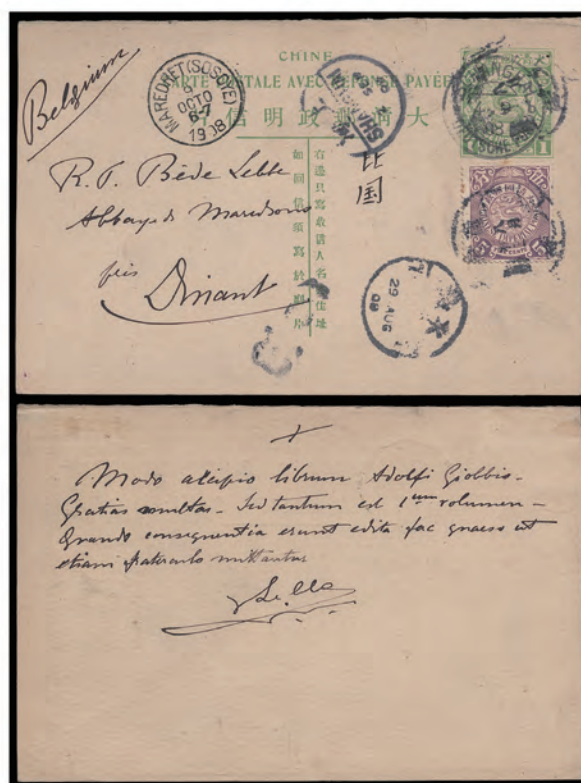 CHINE
CARTE POSTALE AVEC RÉPONSE PAYÉE
大清郵政明信片
Belgium
MAREDRET (SOSOYE)
9
OCTO
6-7
1908
右邊只寫收信人名姓住址
如回信須寫於附片
比国
R. P. Bède Lebbe
Abbaye de Maredsous
près
Dinant
29 AUG
08
1
5
5
+
Modo accipio librum Adolfi Giobbio.
Gratias multas. Sed tantum est 1um volumen
Quando consequentia erunt edita fac quaeso ut
etiam fraterculo mittantur